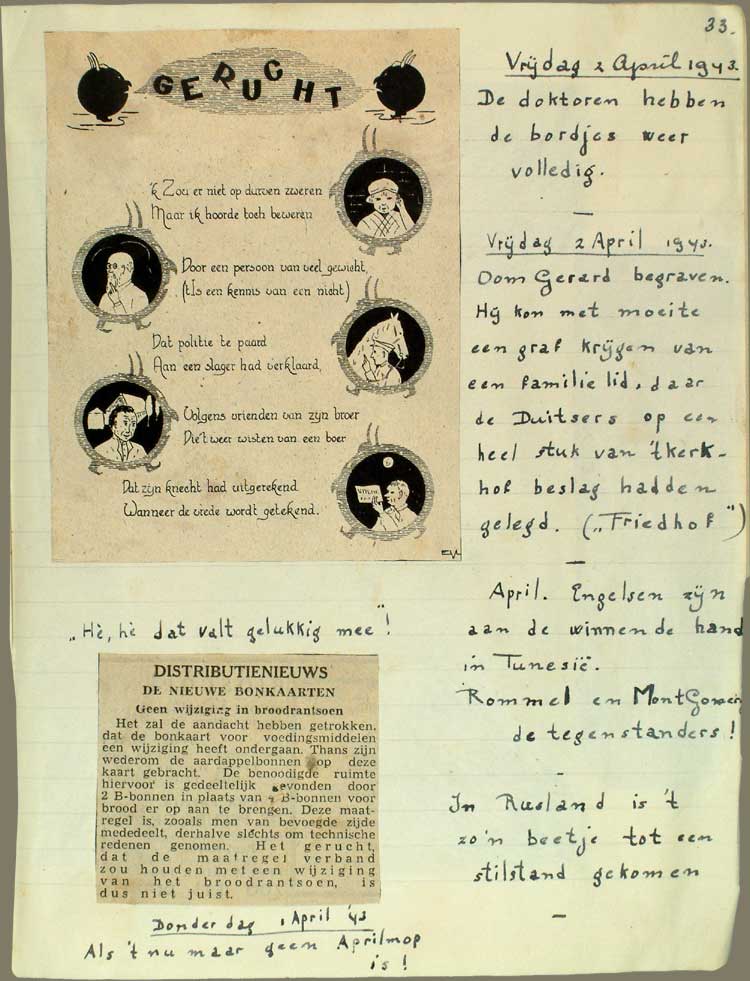 33.
GERUCHT
'k Zou er niet op durven zweren
Maar ik hoorde toch beweren
Door een persoon van veel gewicht,
('t Is een kennis van een nicht)
Dat politie te paard
Aan een slager had verklaard,
Volgens vrienden van zijn broer
Die 't weer wisten van een boer
Dat zijn knecht had uitgerekend
Wanneer de vrede wordt getekend.
„Hè, hè dat valt gelukkig mee"!
DISTRIBUTIENIEUWS
DE NIEUWE BONKAARTEN
Geen wijziging in broodrantsoen
Het zal de aandacht hebben getrokken,
dat de bonkaart voor voedingsmiddelen
een wijziging heeft ondergaan. Thans zijn
wederom de aardappelbonnen op deze
kaart gebracht. De benoodigde ruimte
hiervoor is gedeeltelijk gevonden door
2 B-bonnen in plaats van 4 B-bonnen voor
brood er op aan te brengen. Deze maat-
regel is, zooals men van bevoegde zijde
mededeelt, derhalve slechts om technische
redenen genomen. Het gerucht,
dat de maatregel verband
zou houden met een wijziging
van het broodrantsoen, is
dus niet juist.
Donderdag 1 April '43
Als 't nu maar geen Aprilmop
is!
Vrijdag 2 April 1943.
De doktoren hebben
de bordjes weer
volledig.
Vrijdag 2 April 1943.
Oom Gerard begraven.
Hij kon met moeite
een graf krijgen van
een familie lid, daar
de Duitsers op een
heel stuk van 't kerk-
hof beslag hadden
gelegd. („Friedhof")
April. Engelsen zijn
aan de winnende hand
in Tunesië.
Rommel en MontGomery
de tegenstanders!
In Rusland is 't
zo'n beetje tot een
stilstand gekomen